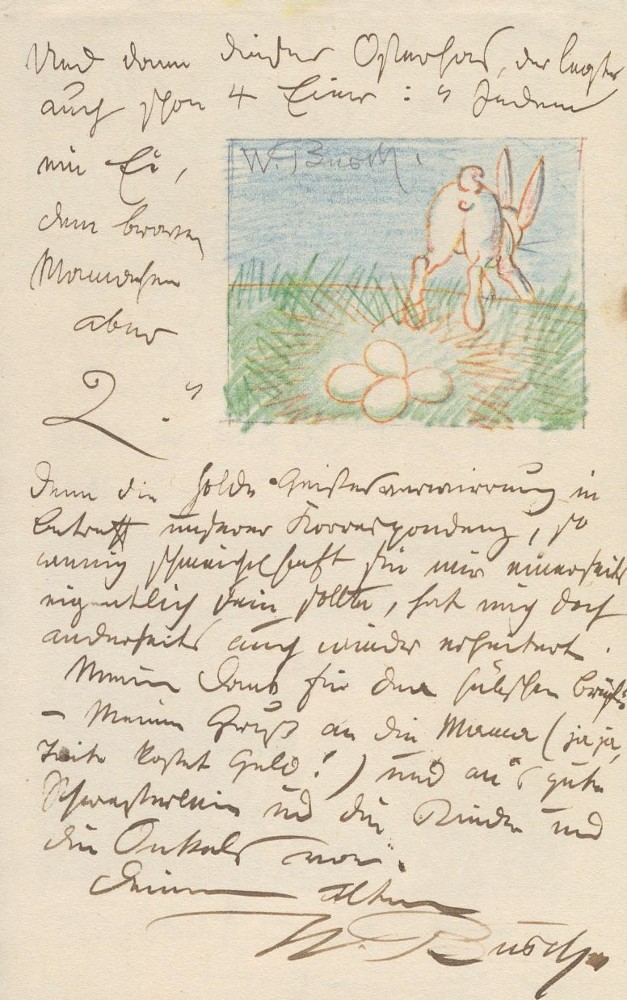 Und dann dieser Osterhas, der legte
auch schon 4 Eier: „Jedem
ein Ei,
dem braven
Mamachen
aber
2.“
W. Busch.
Denn die holde Geistesverwirrung in
betreff unserer Korrespondenz, so
wenig schmeichelhaft sie mir einerseits
eigentlich sein sollte, hat mich doch
anderseits auch wieder erheitert.
Meinen Dank für den hübschen Brief!
– Meinen Gruß an die Mama (ja ja,
Zeit kostet Geld!) und an's gute
Schwesterlein und die Kinder und
die Onkels von
Deinem alten
W. Busch.